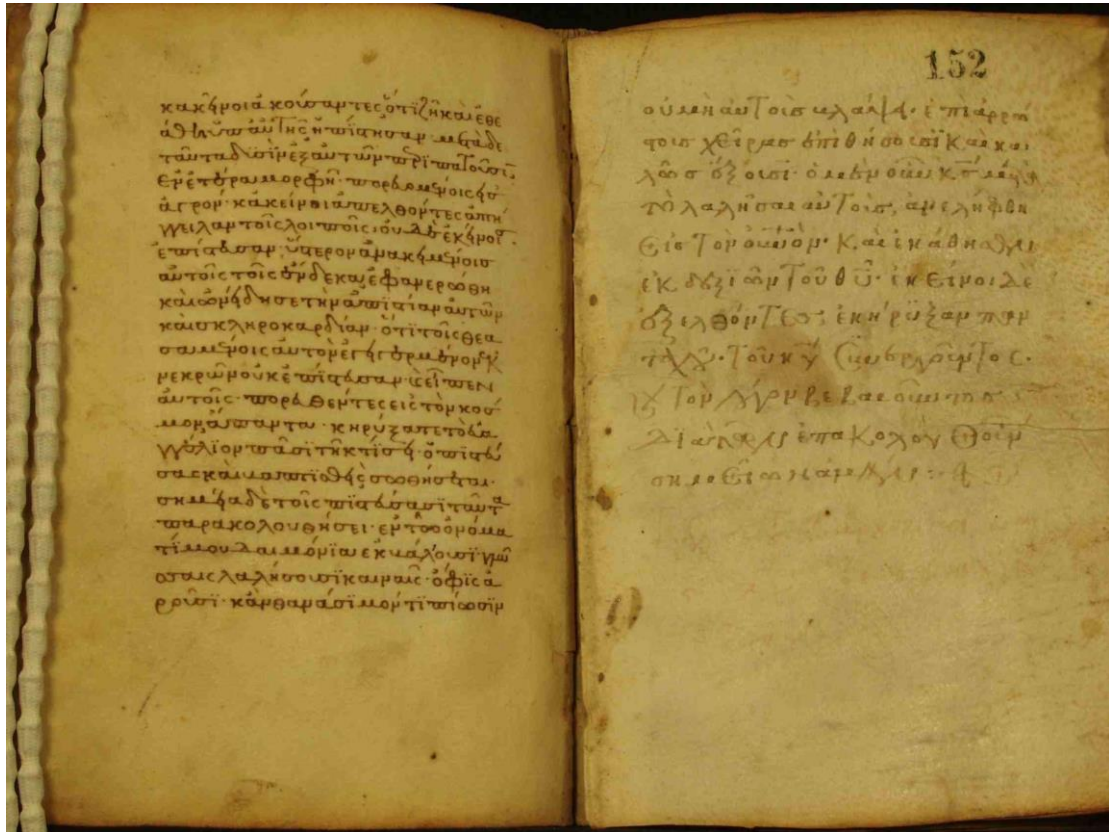 κακεῖνοι ἀκούσαντες ὅτι ζῆ καὶ ἐθε
άθη ὑπ αὐτῆς ἠπίστησαν μετὰ δε
ταῦτα δυσὶν ἐξ αὐτῶν περιπατοῦσιν
ἐν ἑτέρα μορφῆ· πορευομένοις εἰς
ἀγρον· κἀκείνοι ἀπελθόντες ἀπή
γγειλαν τοῖς λοιποῖς· οὐδὲ ἐκείνοις
ἐπίστευσαν· ὕστερον ἀνακειμένοις
αὐτοῖς τοῖς ἕνδεκα ἐφανερώθη
καὶ ὠνείδησε τὴν ἀπιστίαν αὐτῶν
καὶ σκληροκαρδίαν· ὅτι τοῖς θεα
σαμένοις αὐτὸν ἐγηγερμένον ἐκ
νεκρῶν οὐκ ἐπίστευσαν· καὶ εἶπεν
αὐτοῖς· πορευθέντες εἰς τὸν κόσ
μον ἅπαντα· κηρύξατε τὸ εὐα
γγέλιον πάσι τῆ κτίσει· ὁ πιστεύ
σας καὶ βαπτισθεὶς σωθήσεται·
σημεῖα δὲ τοῖς πιστεύσασι ταῦτα
παρακολουθήσει· ἐν τῶ ὀνόμα
τί μου δαιμόνια ἐκβάλουσι· γλώ
σσαις λαλήσουσι καιναῖς· ὄφις ἀ
ροῦσι· κἂν θανάσιμόν τι πίωσιν
152
οὐ μὴ αὐτοὺς βλάψη· ἐπὶ ἀρρώ
στοις χεῖρας ἐπιθήσουσι καὶ κα
λῶς ἕξουσι· ὁ μὲν οὖν κς μετὰ
τὸ λαλῆσαι αὐτοῖς, ἀνελήφθη
εἰς τὸν οὐνὸν· καὶ ἐκάθησεν
ἐκ δεξιῶν τοῦ θυ· ἐκεῖνοι δε
ἐξελθόντες· ἐκήρυξαν παν
ταχοῦ· τοῦ κυ συνεργοῦντος·
καὶ τὸν λόγον βεβαιοῦντος
διὰ τῶν ἐπακολουθούν
σημείων ἀμήν